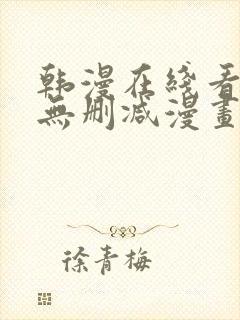 韩漫在线看
無删减漫畫
徐青梅